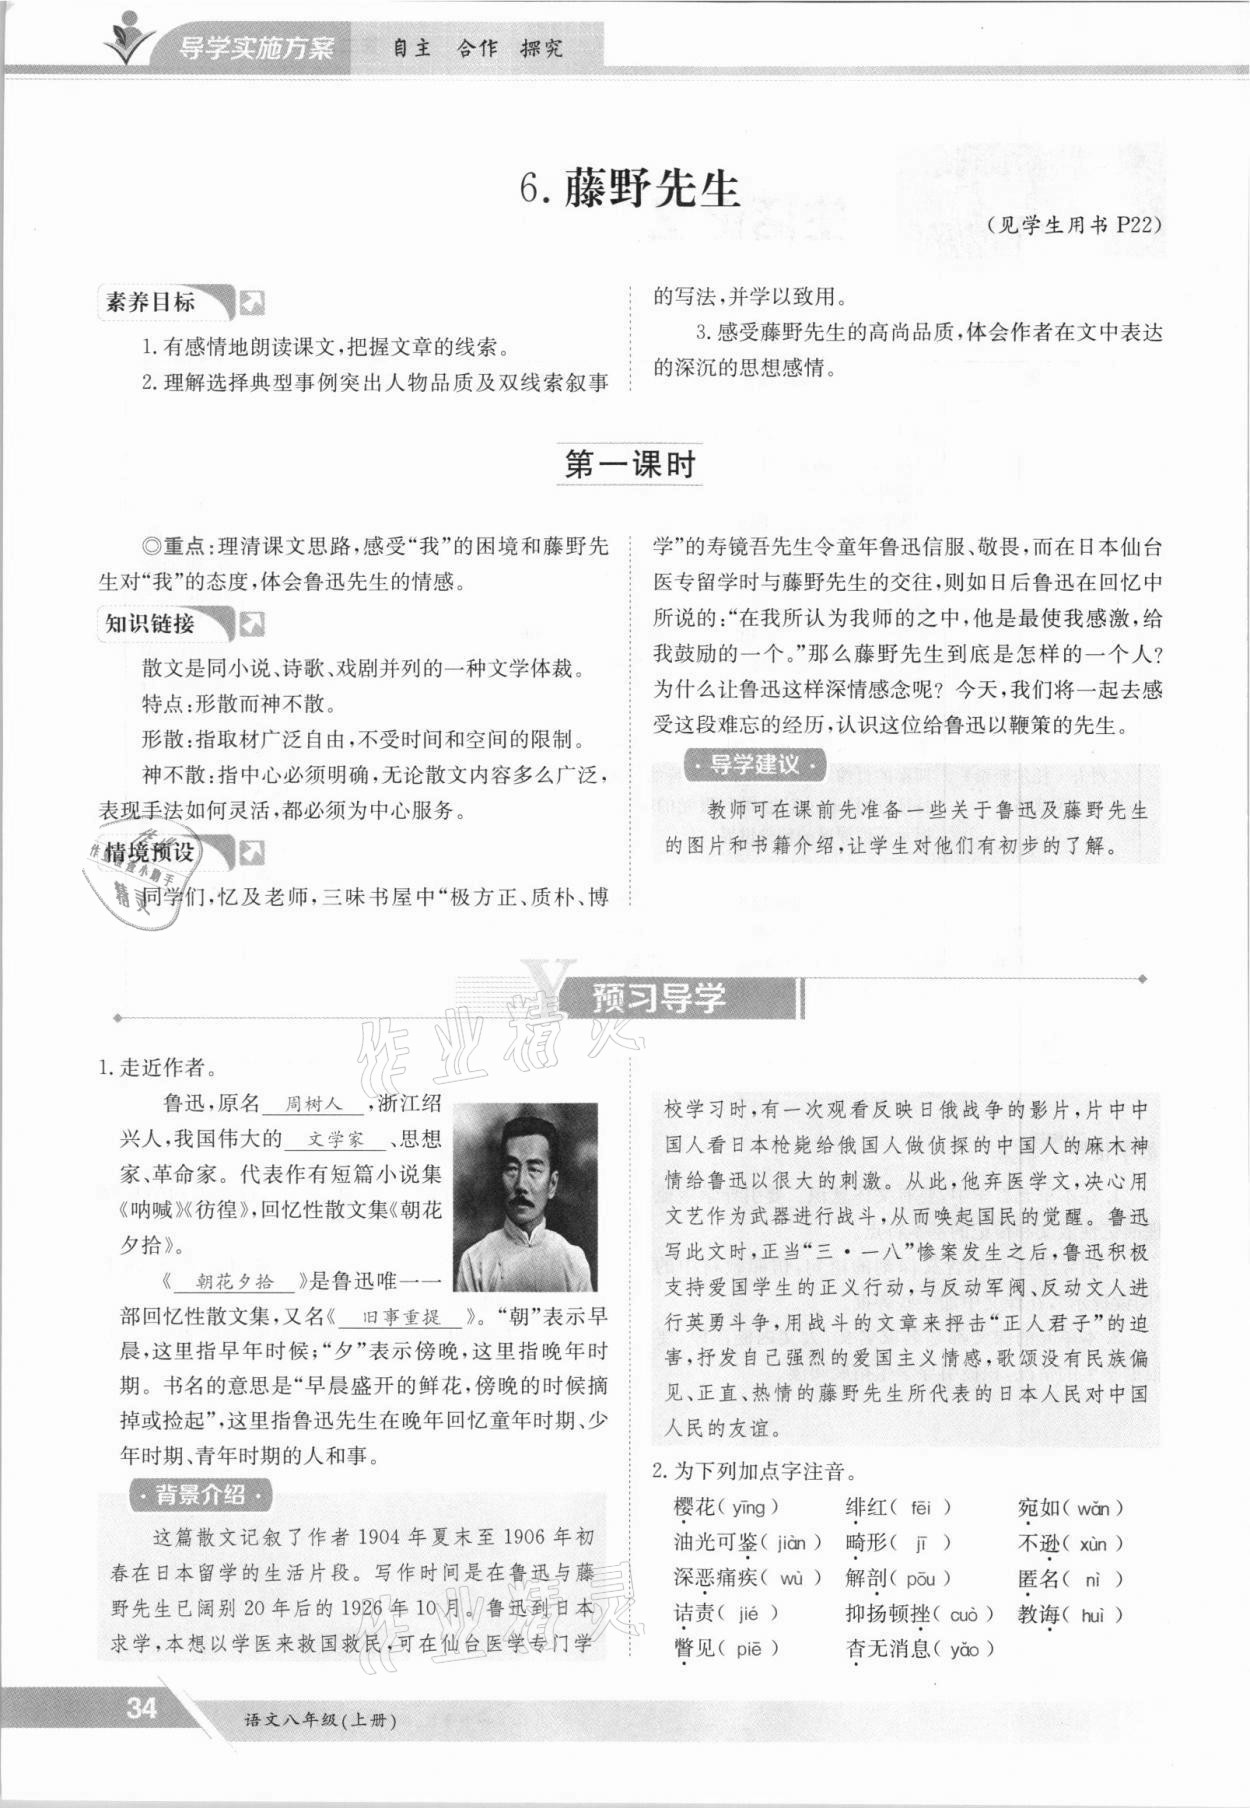 导学实施方案 自主 合作 探究
6. 藤野先生
(见学生用书 P22)
素养目标
1. 有感情地朗读课文,把握文章的线索。
2. 理解选择典型事例突出人物品质及双线索叙事
的写法,并学以致用。
3. 感受藤野先生的高尚品质,体会作者在文中表达
的深沉的思想感情。
第一课时
◎重点:理清课文思路,感受“我”的困境和藤野先
生对“我”的态度,体会鲁迅先生的情感。
知识链接
散文是同小说、诗歌、戏剧并列的一种文学体裁。
特点:形散而神不散。
形散:指取材广泛自由,不受时间和空间的限制。
神不散:指中心必须明确,无论散文内容多么广泛,
表现手法如何灵活,都必须为中心服务。
情境预设
同学们,忆及老师,三味书屋中“极方正、质朴、博
学”的寿镜吾先生令童年鲁迅信服、敬畏,而在日本仙台
医专留学时与藤野先生的交往,则如日后鲁迅在回忆中
所说的:“在我所认为我师的之中,他是最使我感激,给
我鼓励的一个。”那么藤野先生到底是怎样的一个人?
为什么让鲁迅这样深情感念呢? 今天,我们将一起去感
受这段难忘的经历,认识这位给鲁迅以鞭策的先生。
·导学建议·
教师可在课前先准备一些关于鲁迅及藤野先生
的图片和书籍介绍,让学生对他们有初步的了解。
Y 预习导学
1. 走近作者。
鲁迅,原名 周树人 ,浙江绍
兴人,我国伟大的 文学家 、思想
家、革命家。代表作有短篇小说集
《呐喊》《彷徨》,回忆性散文集《朝花
夕拾》。
《 朝花夕拾 》是鲁迅唯一一
部回忆性散文集,又名《 旧事重提 》。“朝”表示早
晨,这里指早年时候;“夕”表示傍晚,这里指晚年时
期。书名的意思是“早晨盛开的鲜花,傍晚的时候摘
掉或捡起”,这里指鲁迅先生在晚年回忆童年时期、少
年时期、青年时期的人和事。
·背景介绍·
这篇散文记叙了作者 1904 年夏末至 1906 年初
春在日本留学的生活片段。写作时间是在鲁迅与藤
野先生已阔别 20 年后的 1926 年 10 月。鲁迅到日本
求学,本想以学医来救国救民,可在仙台医学专门学
校学习时,有一次观看反映日俄战争的影片,片中中
国人看日本枪毙给俄国人做侦探的中国人的麻木神
情给鲁迅以很大的刺激。从此,他弃医学文,决心用
文艺作为武器进行战斗,从而唤起国民的觉醒。鲁迅
写此文时,正当“三·一八”惨案发生之后,鲁迅积极
支持爱国学生的正义行动,与反动军阀、反动文人进
行英勇斗争,用战斗的文章来抨击“正人君子”的迫
害,抒发自己强烈的爱国主义情感,歌颂没有民族偏
见、正直、热情的藤野先生所代表的日本人民对中国
人民的友谊。
2. 为下列加点字注音。
樱花( yīng ) 绯红( fēi ) 宛如( wǎn )
油光可鉴( jiàn ) 畸形( jī ) 不逊( xùn )
深恶痛疾( wù ) 解剖( pōu ) 匿名( nì )
诘责( jié ) 抑扬顿挫( cuò ) 教诲( huì )
瞥见( piē ) 杳无消息( yǎo )
34
语文八年级(上册)
作业精灵
作业精灵
作业
作业检查小助手
精灵